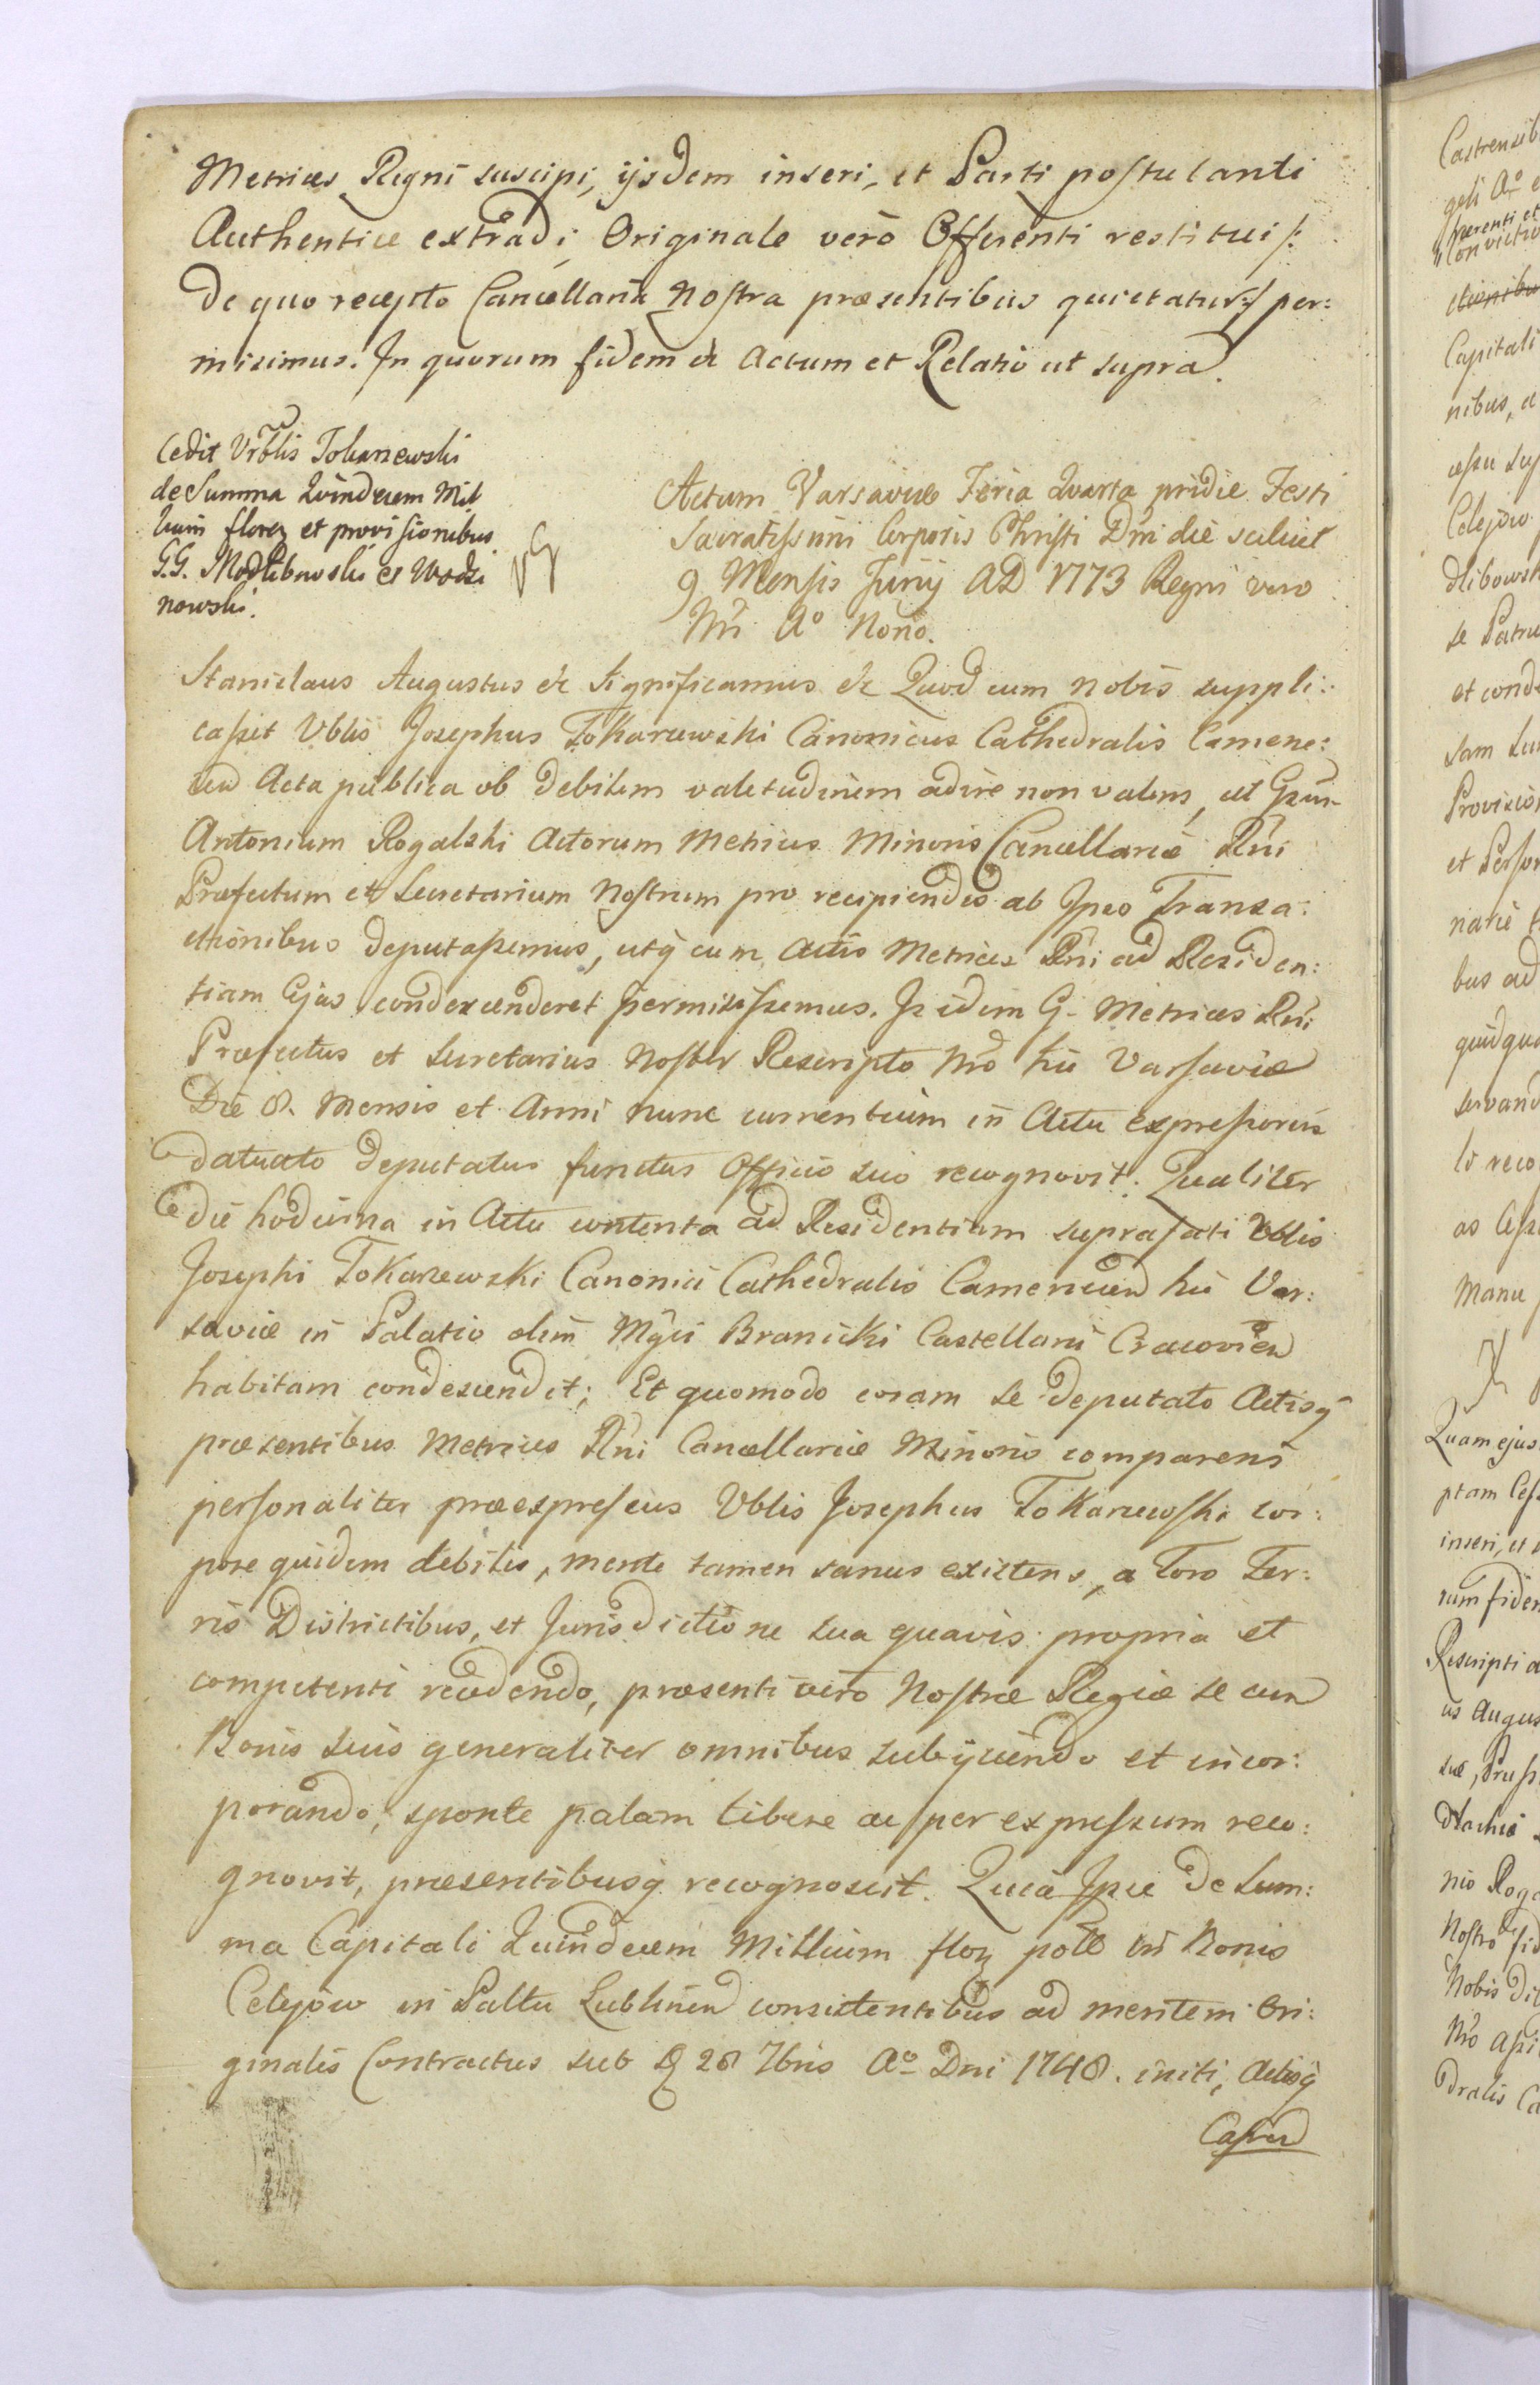 Metrices Regni suscipi, ijsdem inseri, et Parti postulanti
Authentice extradi, Originale verò Offerenti restitui /:
de quo recepto Cancellaria Nostra præsentibus quietatur :/ per:
misimus. In quorum fidem &c Actum et Relatio ut supra.
Cedit Vrblis Tokarzewski
de Summa Quindecem Mil
lium floren et provisionibus
G.G. Modlibowski et Wodzi
nowski.
Actum Varsaviæ Feria Quarta pridie Festi
Sacratissimi Corporis Christi Dni die scilicet
9 Mensis Junij AD 1773 Regni vero
Nri Ao Nono.
Stanislaus Augustus &c Significamus &c Quod cum nobis suppli:
casset Vblis Josephus Tokarzewski Canonicus Cathedralis Camene:
cen Acta publica ob debilem valetudinem adire non valens, ut Gsum
Antonium Rogalski Actorum Metrices Minoris Cancellariæ Rni
Præfectum et Secretarium Nostrum pro recipiendis ab Ipso Transa:
ctionibus deputassemus, utq cum Actis Metrices Rni ad Residen:
tiam Ejus condescenderet permisissemus. Is idem G. Metrices Rni
Præfectus et Secretarius Noster Rescripto Nro hic Varsaviæ
Die 8. Mensis et Anni nunc currentium in Actu expressorum
datuato deputatus functus Officio suo recognovit: Qualiter
die hodierna in Actu contenta ad Residentiam suprafati Vblis
Josephi Tokarzewski Canonici Cathedralis Camenecen hic Var:
saviæ in Palatio olim Mgci Branicki Castellani Cracovien
habitam condescendit; Et quomodo coram se deputato Actisq
præsentibus Metrices Rni Cancellariæ Minoris comparens
personaliter præexpressus Vblis Josephus Tokarzewski cor:
pore quidem debilis, mente tamen sanus existens, a Foro Ter:
ris Districtibus, et Jurisdictione sua quavis propria et
competenti recedendo, præsenti vero Nostræ Regiæ se cum
Bonis suis generaliter omnibus subijciendo et incor:
porando, sponte palam libere ac per expressum reco:
gnovit, præsentibusq recognoscit. Quia Ipse de Sum:
ma Capitali Quindecem Millium flor poll in Bonis
Celejow in Palttu Lublinen consistentibus ad mentem Ori:
ginalis Contractus sub D 28 7bris Ao Dni 1748. initi, Actisq
Castren
Castrensib
geli Ao
ferenti et
Convictio
ctionibu
Capitali
nibus, a
Celejow
dlibowsk
se Patru
et conde
Provision
et Person
narie
bus ad
quidqua
servand
lo reco
manu
Quam ejus
ptam Cess
inseri, et
rum fidem
Rescripti a
us Augus
nio Roga
Nostro fid
Nobis di
Nro
dralis Ca